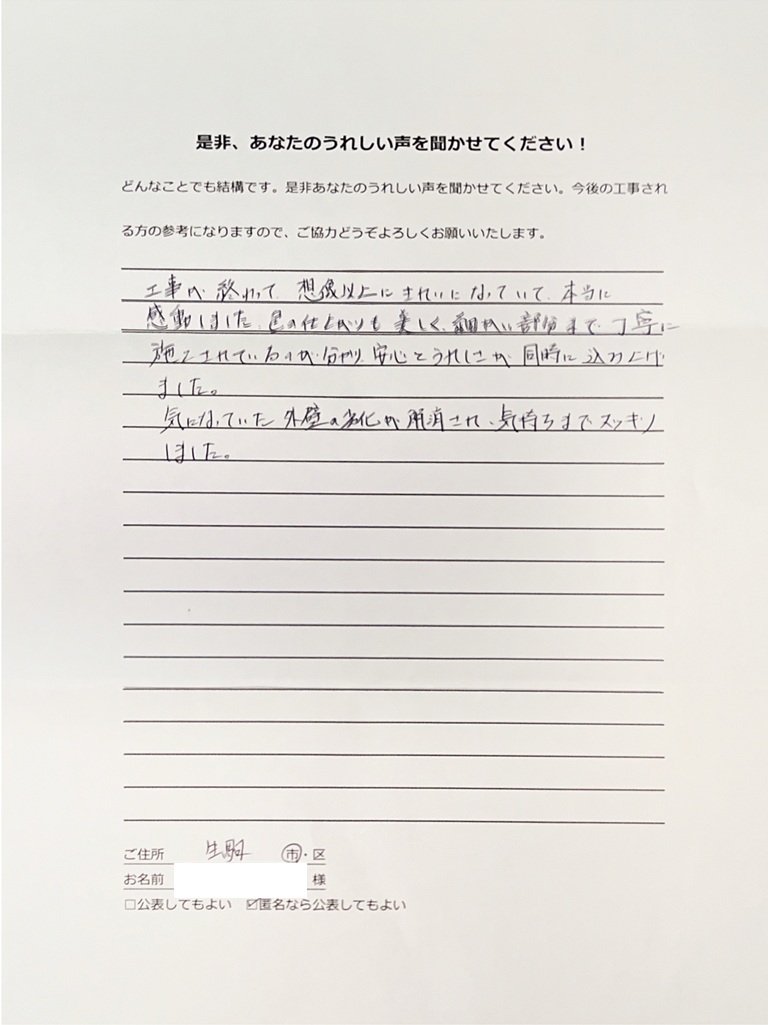 是非、あなたのうれしい声を聞かせてください！
どんなことでも結構です。是非あなたのうれしい声を聞かせてください。今後の工事され
る方の参考になりますので、ご協力どうぞよろしくお願いいたします。
工事が終わって、想像以上にきれいになっていて、本当に
感動しました。色の仕上がりも美しく、細かい部分まで丁寧に
施工されているのが分かり、安心とうれしさが同時に込み上げ
ました。
気になっていた外壁の劣化が解消され、気持ちまでスッキリ
しました。
ご住所 生駒 市・区
お名前 様
□公表してもよい ☑匿名なら公表してもよい